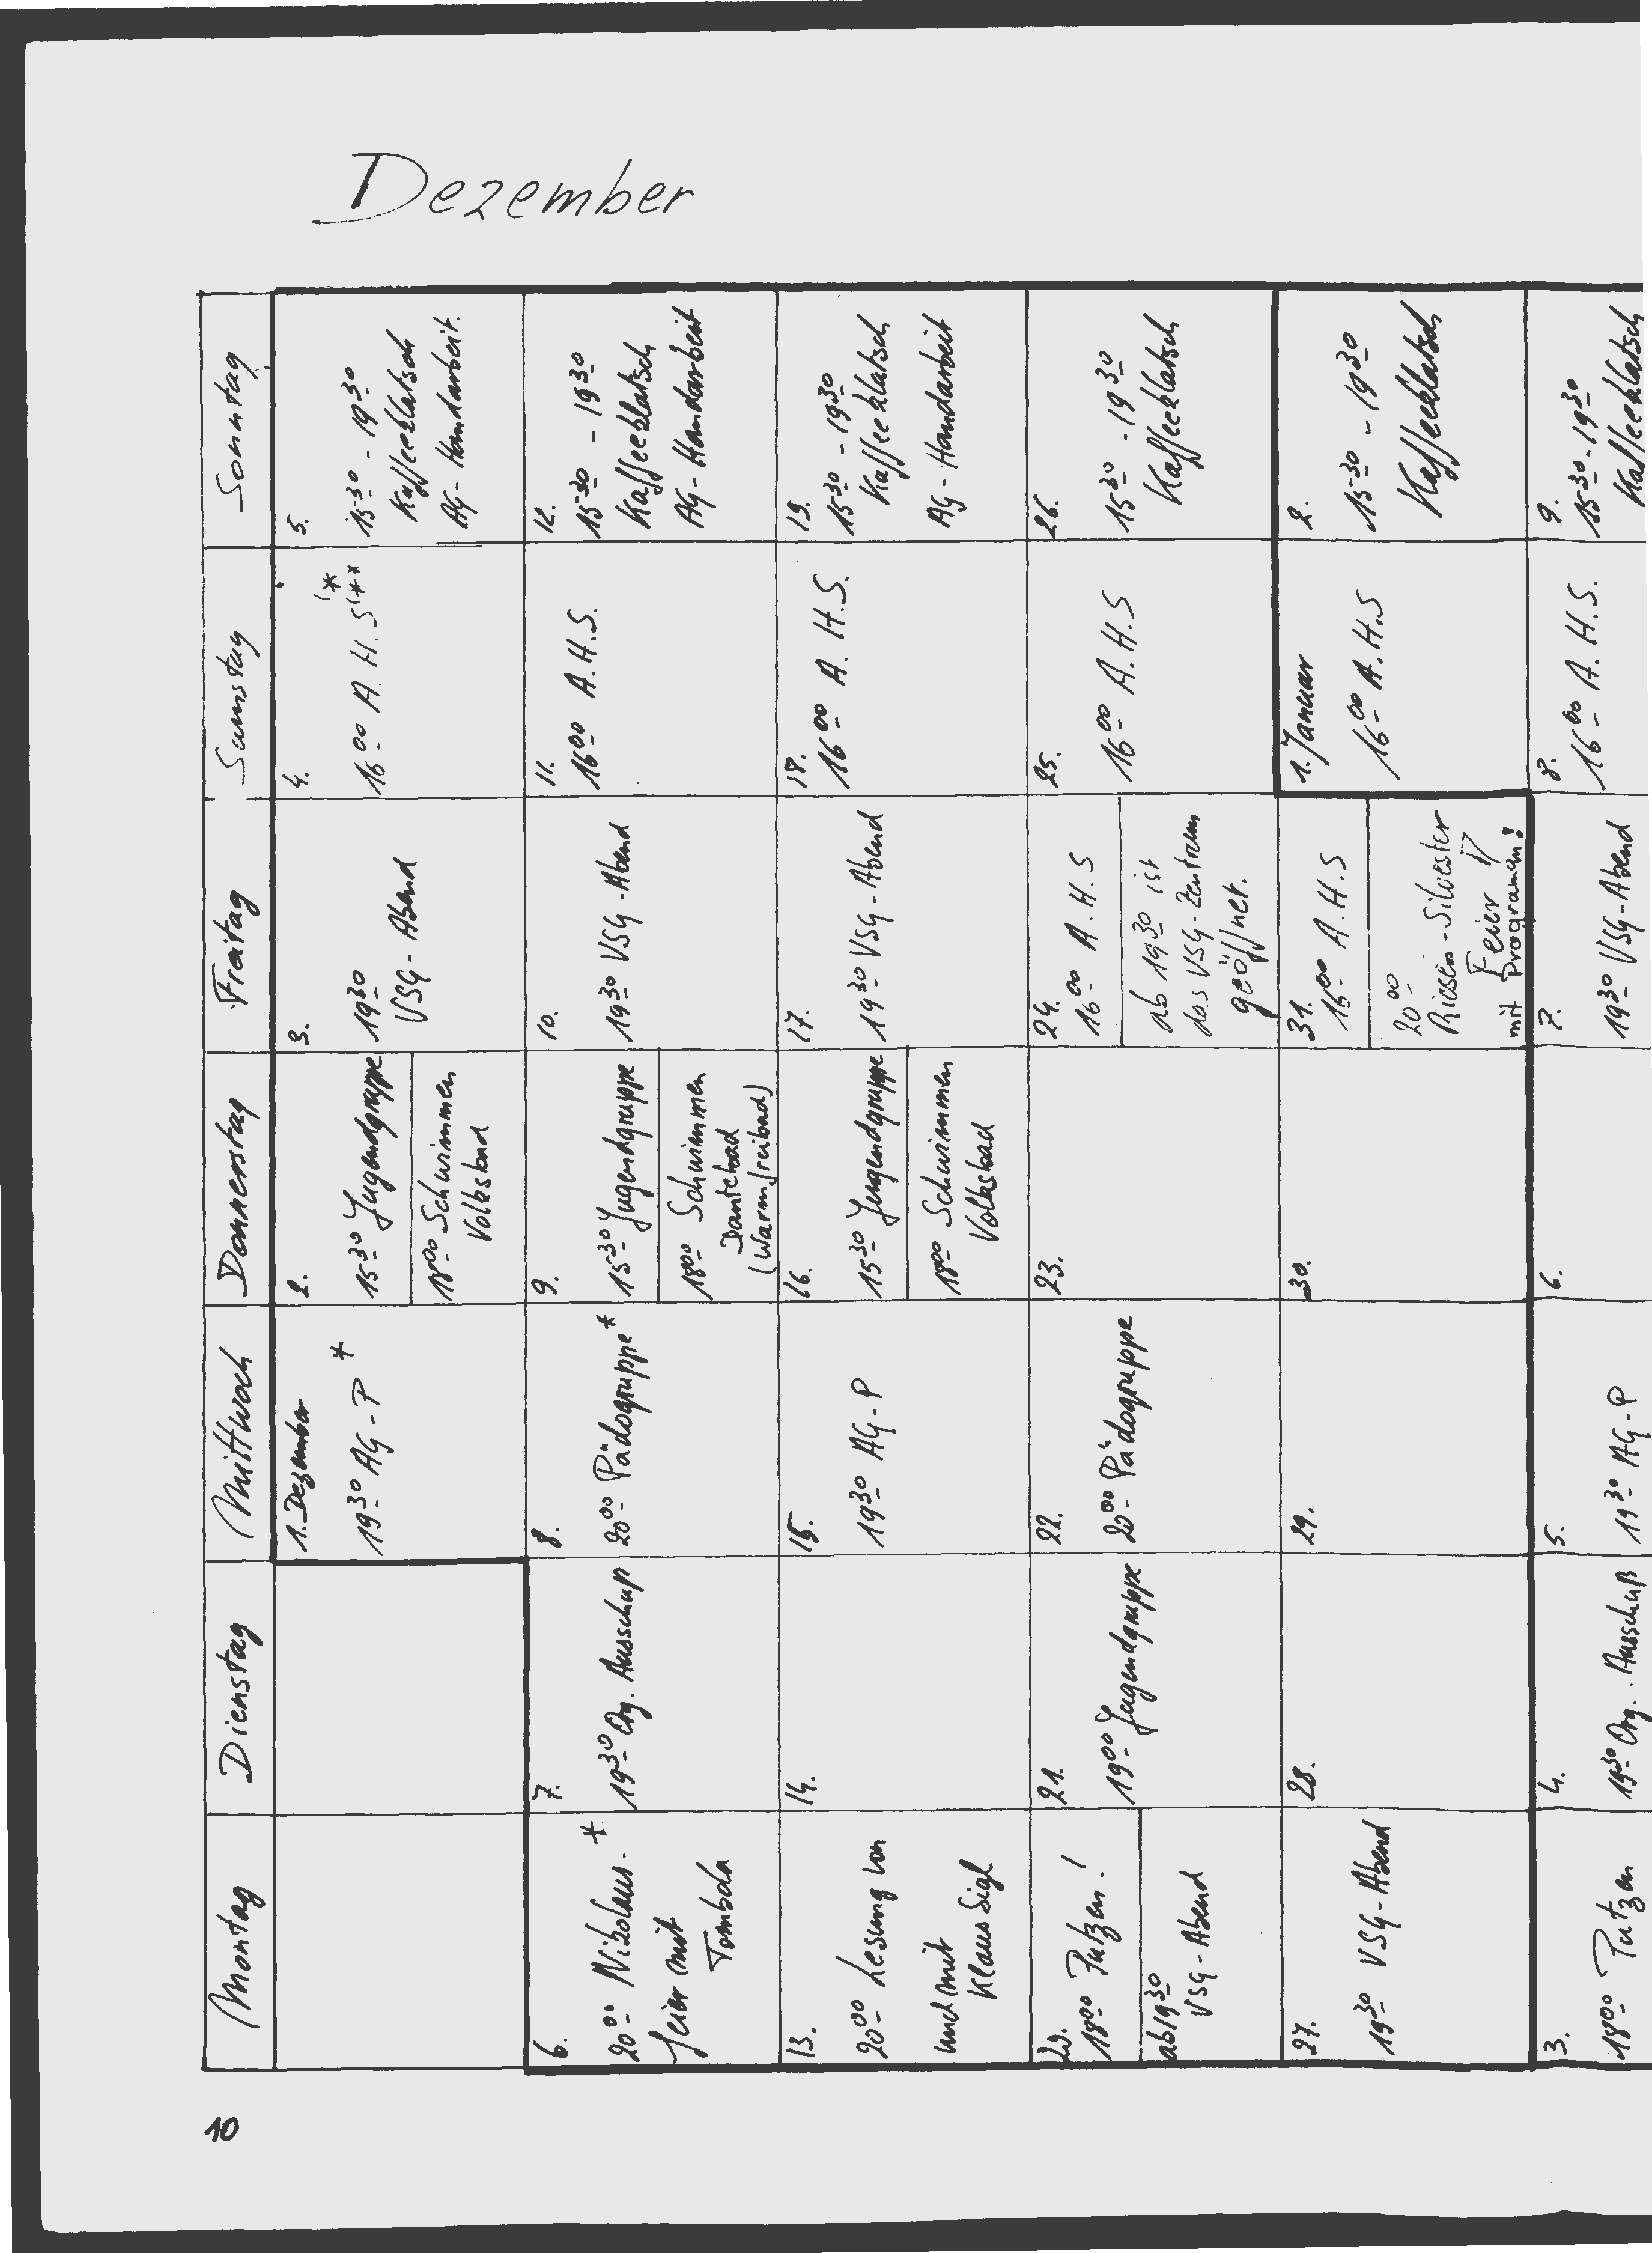 Dezember
Montag
Dienstag
Mittwoch
Donnerstag
Freitag
Samstag
Sonntag
1. Dezember
19 30 AG-P *
2.
15 30 Jugendgruppe
18 00 Schwimmen
Volksbad
3.
19 30
VSG-Abend
4.
(*
16 00 A.H.S (**
5.
15 30 - 19 30
Kaffeeklatsch
AG-Handarbeit.
6.
20 00 Nikolaus- *
feier mit
Tombola
7.
19 30 Org. Ausschuß
8.
20 00 Pädogruppe *
9.
15 30 Jugendgruppe
18 00 Schwimmen
Dantebad
(Warmfreibad)
10.
19 30 VSG-Abend
11.
16 00 A.H.S.
12.
15 30 - 19 30
Kaffeeklatsch
AG-Handarbeit
13.
20 00 Lesung von
und mit
Klaus Sigl
14.
15.
19 30 AG-P
16.
15 30 Jugendgruppe
18 00 Schwimmen
Volksbad
17.
19 30 VSG-Abend
18.
16 00 A.H.S.
19.
15 30 - 19 30
Kaffeeklatsch
AG-Handarbeit
20.
18 00 Putzen!
ab 19 30
VSG-Abend
21.
19 00 Jugendgruppe
22.
20 00 Pädogruppe
23.
24.
16 00 A.H.S
ab 19 30 ist
das VSG-Zentrum
geöffnet.
25.
16 00 A.H.S
26.
15 30 - 19 30
Kaffeeklatsch
27.
19 30 VSG-Abend
28.
29.
30.
31.
16 00 A.H.S
20 00
Riesen-Silvester
Feier !!
mit Programm!
1. Januar
16 00 A.H.S
2.
15 30 - 19 30
Kaffeeklatsch
3.
18 00 Putzen
4.
19 30 Org. Ausschuß
5.
19 30 AG-P
6.
7.
19 30 VSG-Abend
8.
16 00 A.H.S.
9.
15 30 - 19 30
Kaffeeklatsch
10